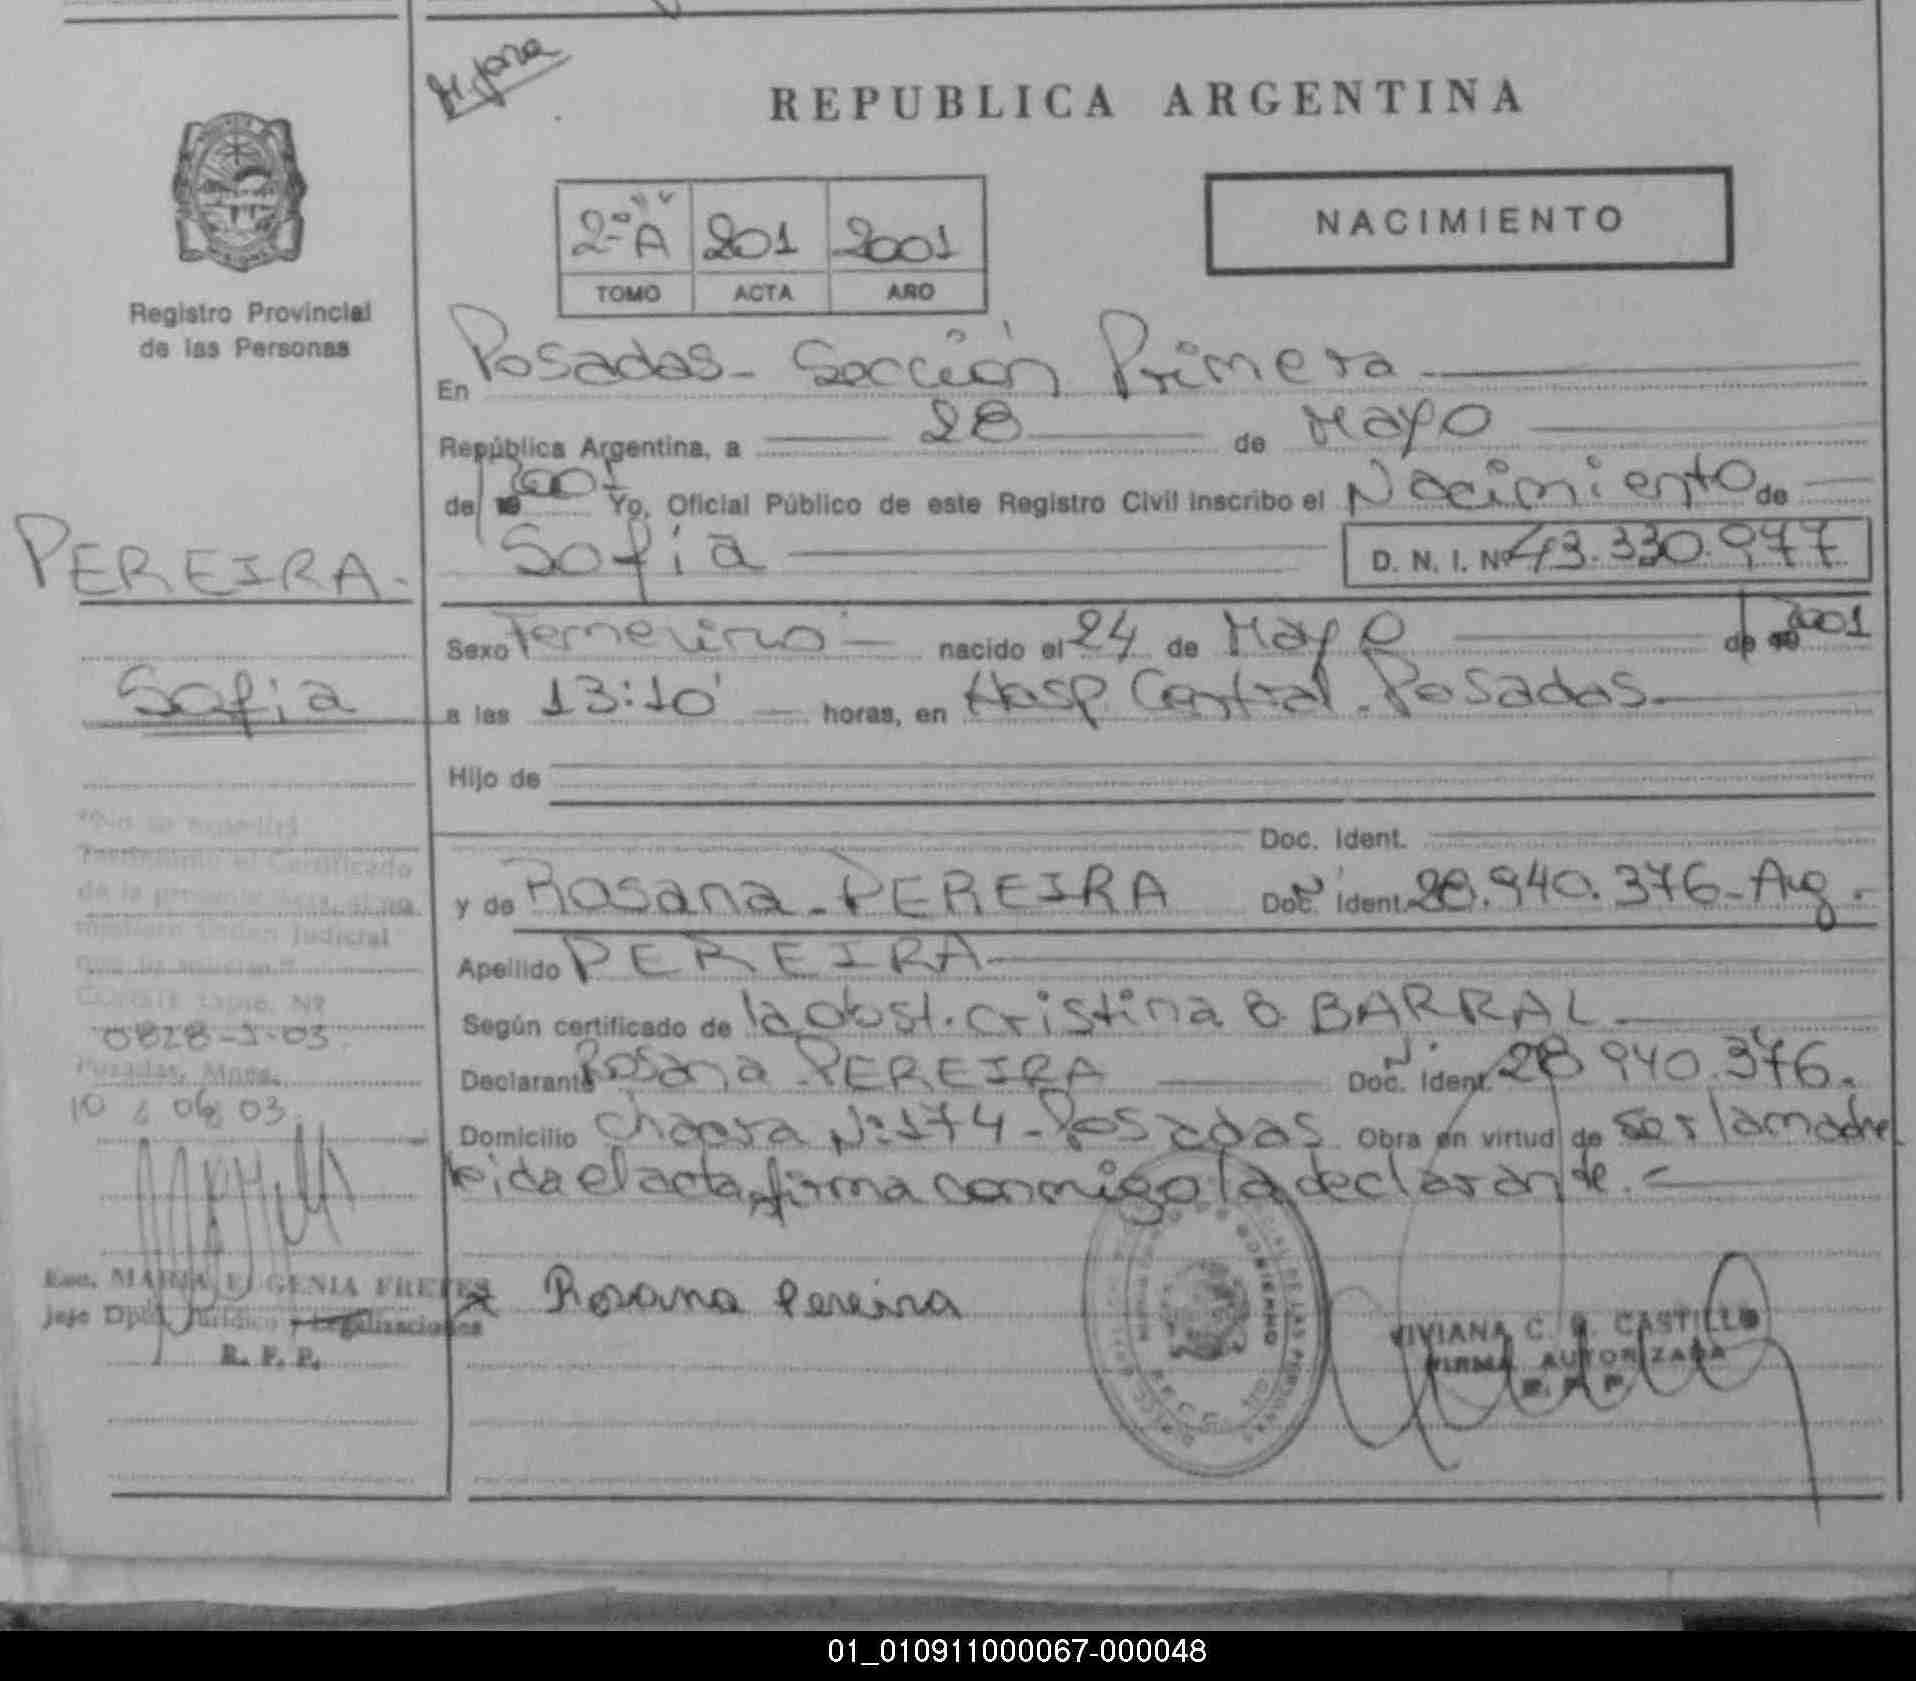 REPUBLICA ARGENTINA
2º A 201 2001
TOMO ACTA AÑO
NACIMIENTO
Registro Provincial
de las Personas
En Posadas - Sección Primera
República Argentina, a 28 de Mayo
de 2001 Yo, Oficial Público de este Registro Civil inscribo el Nacimiento de
Sofia D. N. I. Nº 43.330.977
PEREIRA.
Sofia
Sexo Femenino nacido el 24 de Mayo de 2001
a las 13:10' horas, en Hosp. Central - Posadas
Hijo de
Doc. Ident.
y de Rosana - PEREIRA Doc. Ident. 28.940.376 - Arg.
Apellido PEREIRA
Según certificado de la obst. Cristina B. BARRAL
Declarante Rosana PEREIRA Doc. Ident. 28 940.376.
Domicilio chacra Nº 174 - Posadas Obra en virtud de ser la madre
leida el acta, firma conmigo la declarante. -
"No se expedirá
Testimonio ni Certificado
de la presente Acta, si no
mediare Orden Judicial
que lo solicite."
CONSTE Expte. Nº
0828-J-03
Posadas, Mnes.
10 06 03
Esc. MARIA EUGENIA FRETES
Jefe Dpto. Jurídico y Legalizaciones
R. P. P.
x Rosana Pereira
VIVIANA C. CASTILLO
FIRMA AUTORIZADA
R. P. P.
01_010911000067-000048